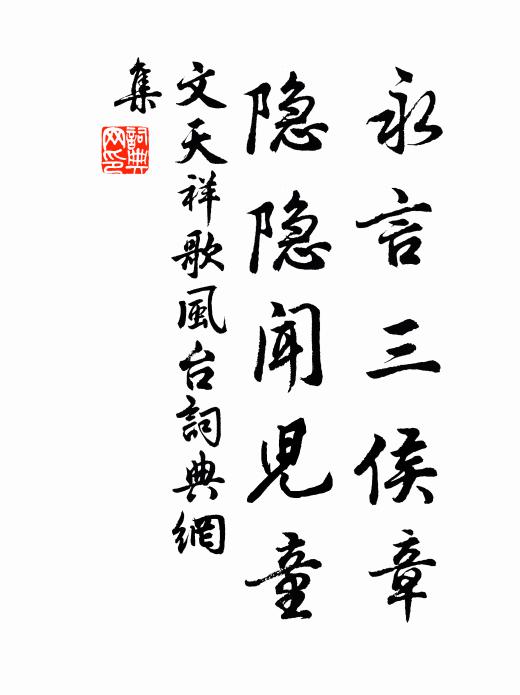 永言三侯章
隐隐闻児童
文天祥歌風台詞典網
集
詞典网印